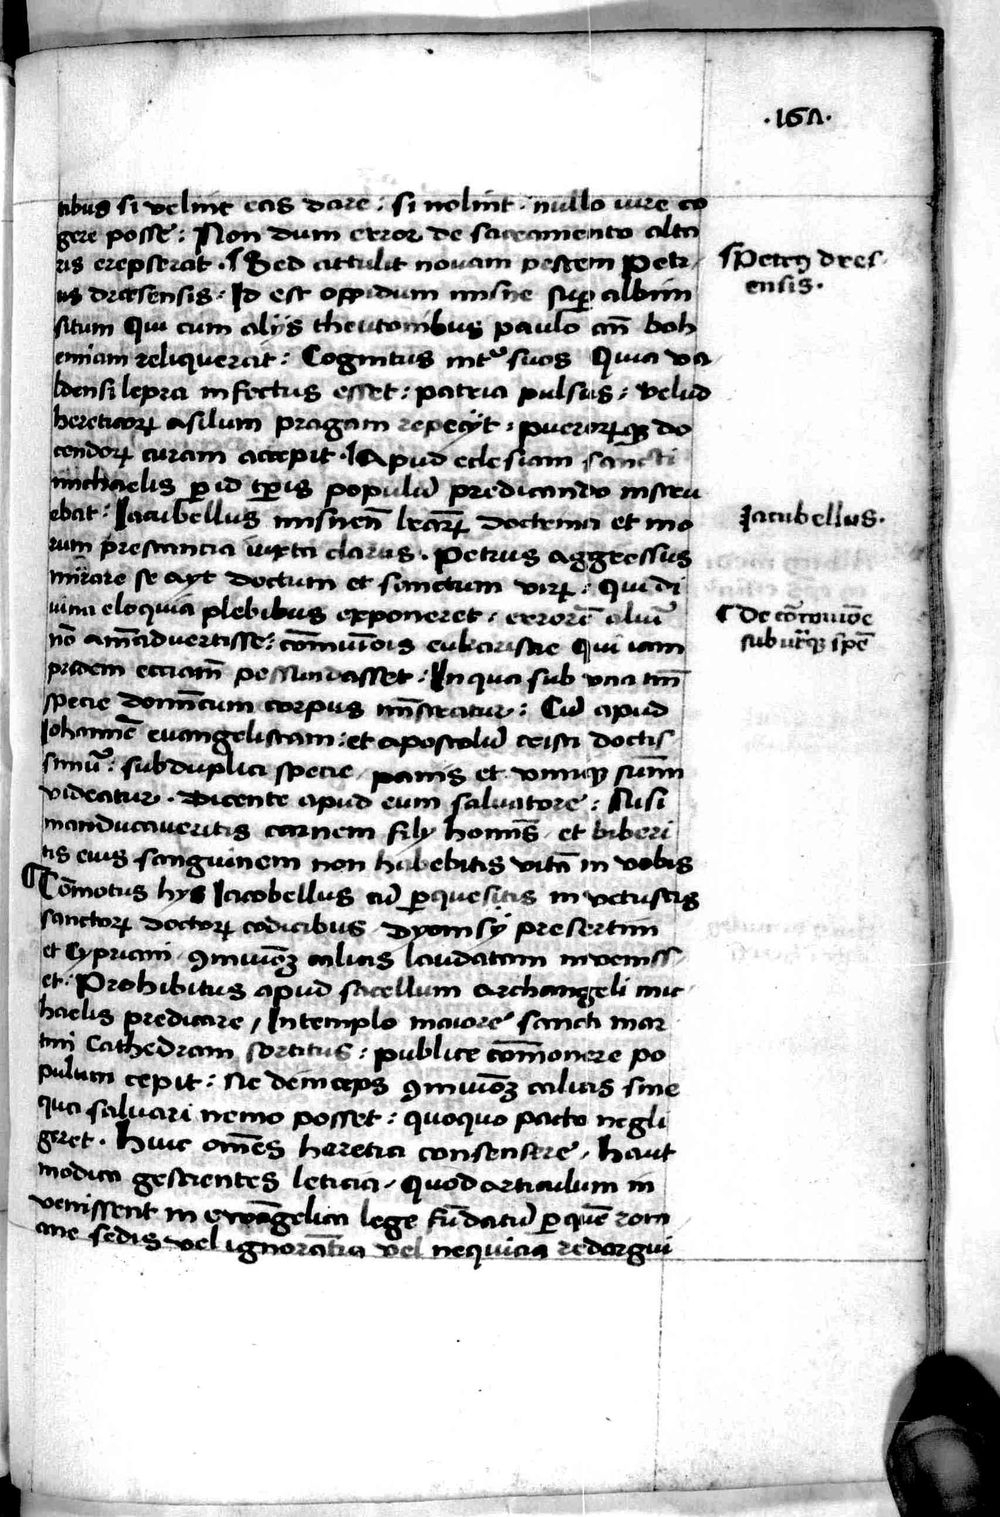 ·167·
tibus si velint eas dare : si nolint · nullo iure co
gere posse : Non dum error de sacramento alta
ris erepserat · Sed attulit novam pestem Petr
us dræsensis : Id est oppidum misne sup albim
situm Qui cum alijs theutonibus paulo an̄ boh
emiam reliquerat : Cognitus int suos Quia va
ldensi lepra infectus esset : patria pulsus : velud
hereticoꝝ asilum pragam repecijt : pueroꝝqꝫ do
cendoꝝ curam accepit · Apud eclesiam sancti
michaelis ꝑ id tp̄is populū predicando instru
ebat : Iacubellus misnen̄ doctrina et mo
rum prestancia iuxta clarus · Petrus aggressus
mirare se ayt doctum et sanctum viꝝ : Qui di
uina eloquia plebibus exponeret · errorē aliū
nō am̄advertisse : com̄uīois eukaristie Qui iam
pridem ecciam̄ pessundasset : In qua sub una tm̄
specie domīcum corpus mīstratur : Cū apud
Johannē evangelistam : et apostolū cristi doctis
simū : sub duplici specie panis et viniqꝫ sumi
videatur · Dicente apud eum salvatore : Nisi
manducaveritis carnem filij homīs et biberi
tis eius sanguinem non habebitis vitā in vobis
Cōmotus hys Iacobellus cū ꝑquesitis in vetustis
sanctoꝝ doctoꝝ codicibus Dyonisij presertim
et Cypriani ꝯmuniōꝫ calicis laudatam inveniss
et · Prohibitus apud sacellum archangeli mic
haelis predicare / In templo maiore sancti mar
tini Cathedram sortitus : publice com̄onere po
pulum cepit : ne deinceps ꝯmuniōꝫ calicis sine
qua salvari nemo posset : quoquo pacto negli
geret · Huic om̄es heretici consensere / haut
modica gescientes leticia / Quod articulum in
venissent in evāgelica lege fūdatū ꝑ quē rom
ane sedis vel ignorātia vel nequicia redargui
Petrꝰ dres
ensis ·
Jacubellus ·
De cōmuniōe
sub utͣqꝫ spē